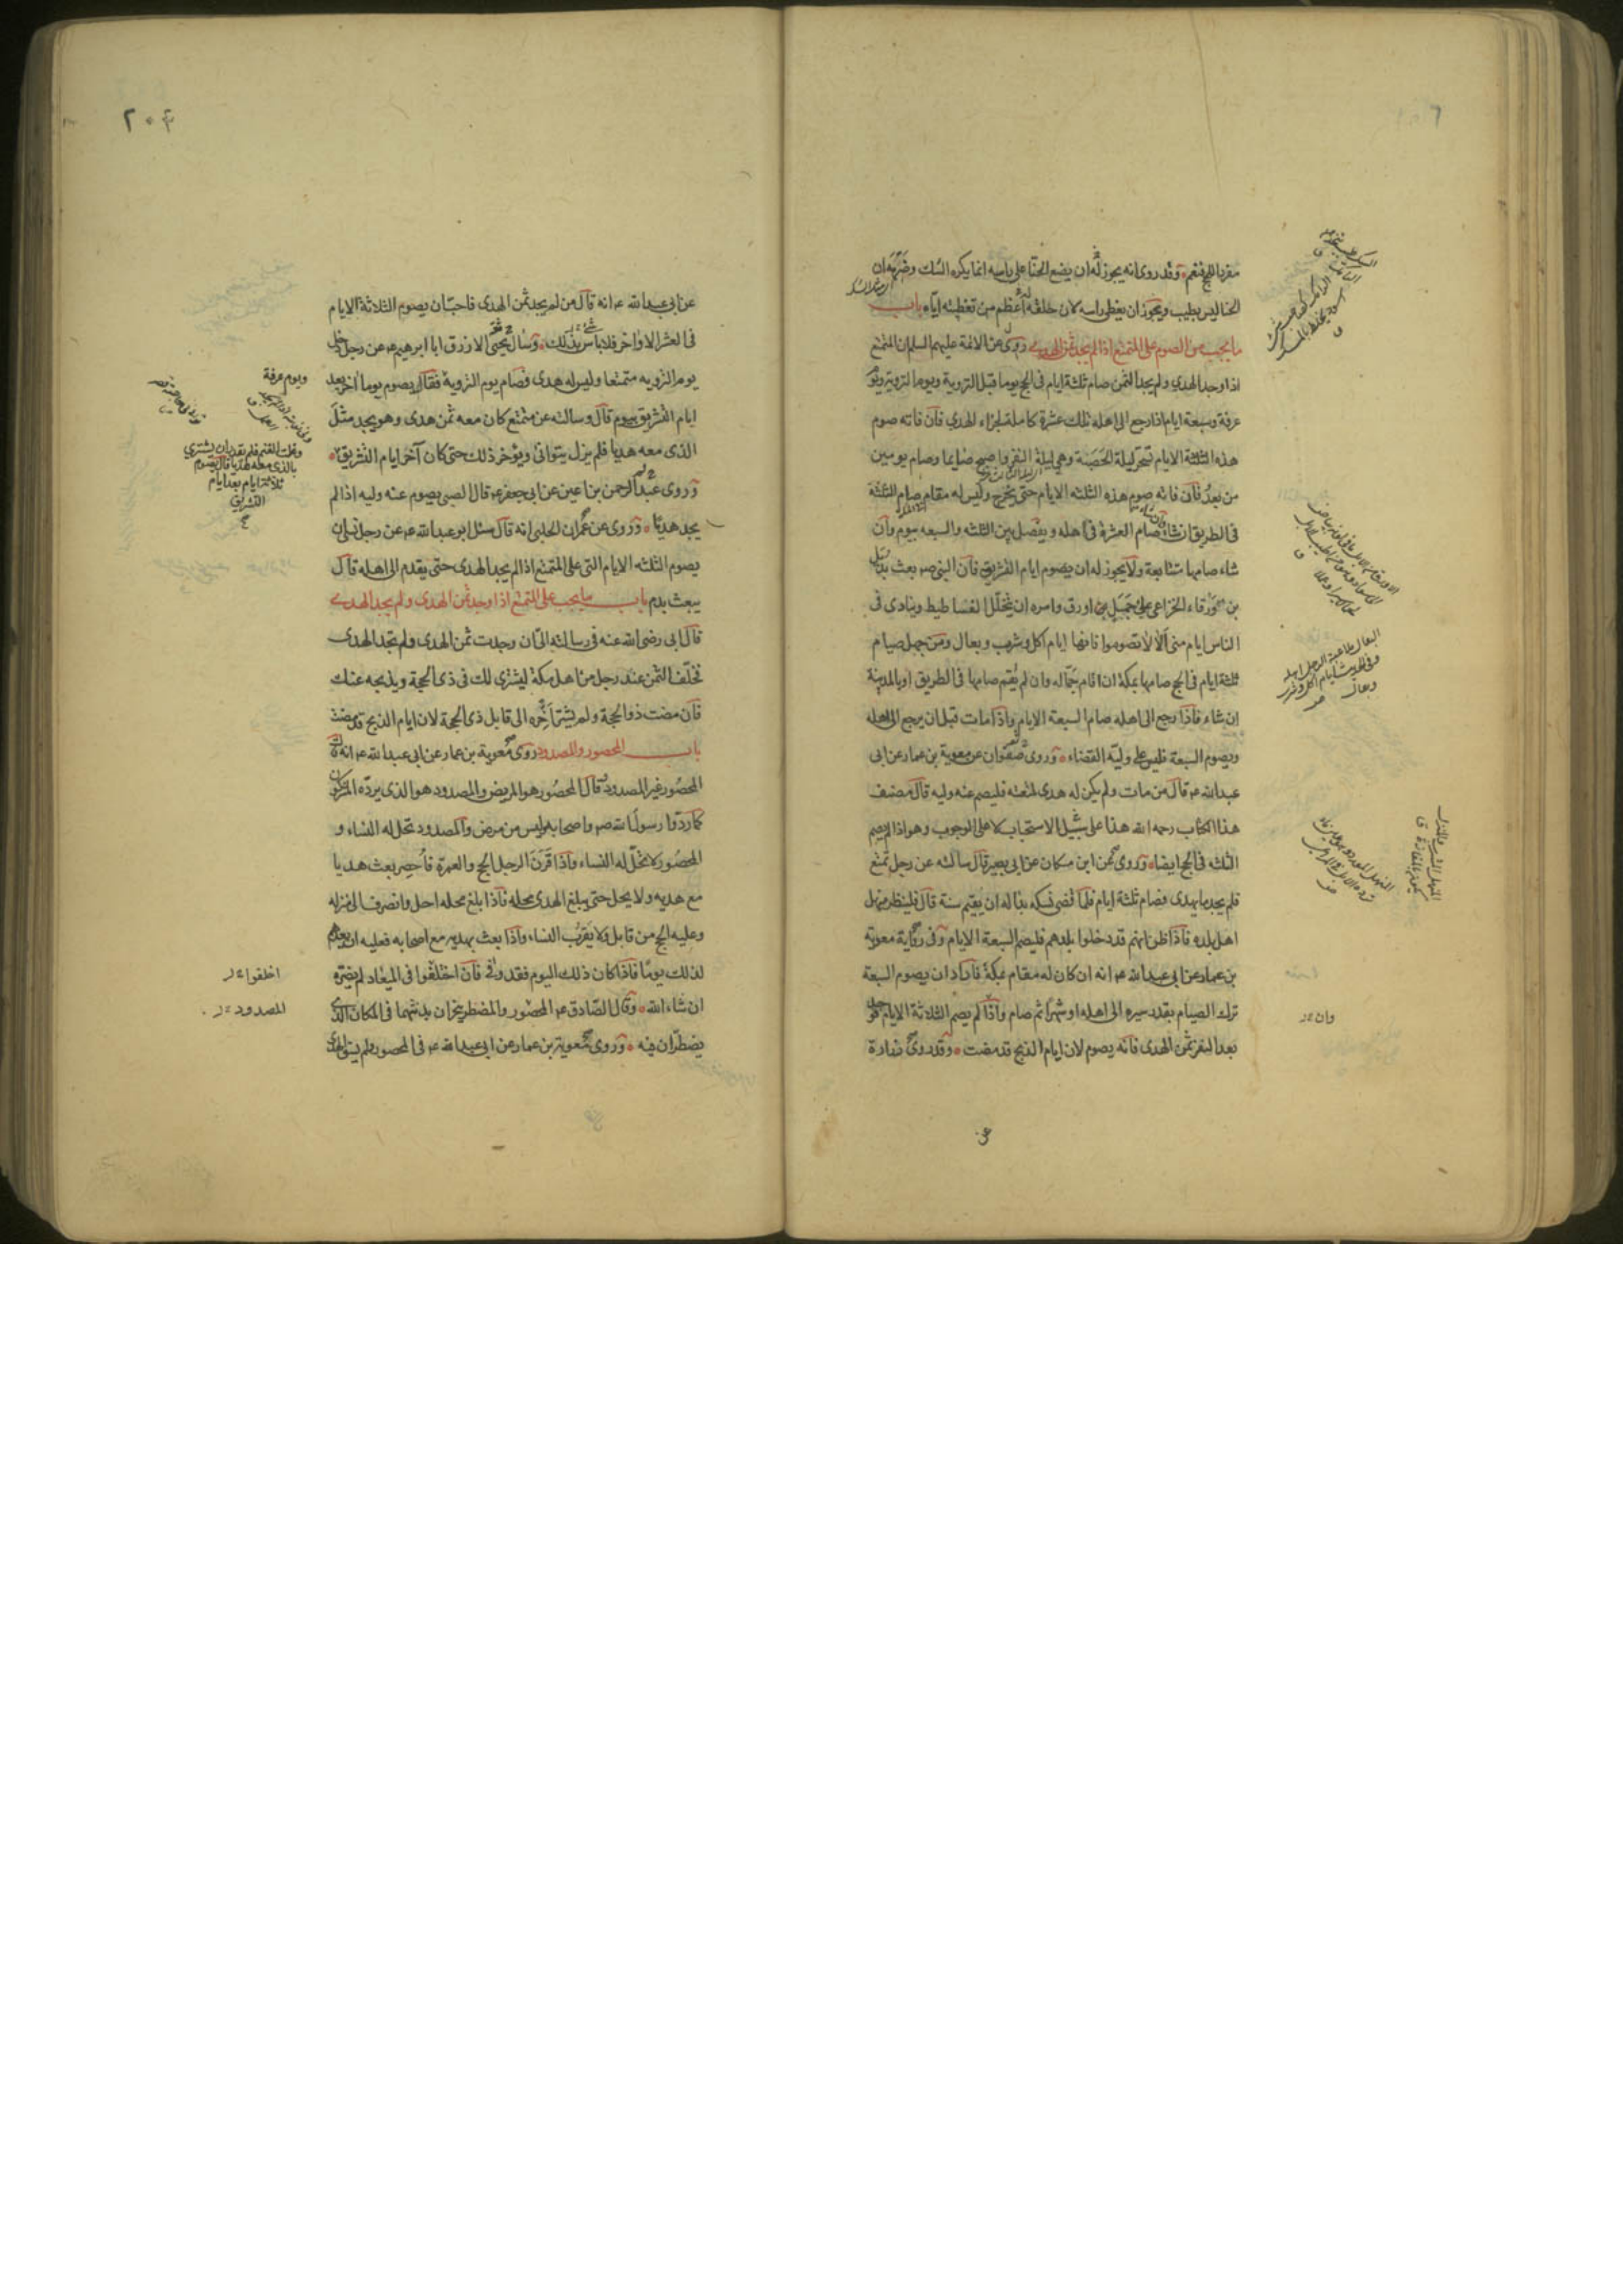 مفردا للحج فنعم وقد روى انه يجوز له ان يضع الحنا على راسه انما يكره السك وضربه ان
الحنا ليس بطيب ويجوز ان يغطى راسه لان حلقه له اعظم من تغطيته اياه باب
ما يجب من الصوم على المتمتع اذا لم يجد ثمن الهدى روى عن الائمة عليهم السلم ان المتمتع
اذا وجد الهدى ولم يجد الثمن صام ثلثة ايام فى الحج يوما قبل التروية ويوم التروية ويوم
عرفة وسبعة ايام اذا رجع الى اهله تلك عشرة كاملة لجزاء الهدى فان فاته صوم
هذه الثلثة الايام تسحر ليلة الحصبة وهى ليلة النفر واصبح صايما وصام يومين
من بعد فان فاته صوم هذه الثلثه الايام حتى يخرج وليس له مقام صام الثلثة
فى الطريق ان شاء صام العشرة فى اهله ويفصل بين الثلثه والسبعه بيوم وان
شاء صامها متتابعة ولا يجوز له ان يصوم ايام التشريق فان النبى صم بعث بديل
بن ورقاء الخزاعى على جمل اورق وامره ان يتخلل الفساطيط وينادى فى
الناس ايام منى الا لا تصوموا فانها ايام اكل وشرب وبعال ومن جهل صيام
ثلثة ايام فى الحج صامها بمكة ان اقام جماله وان لم يقم صامها فى الطريق او بالمدينة
ان شاء فاذا رجع الى اهله صام السبعة الايام واذا مات قبل ان يرجع الى اهله
ويصوم السبعة فليس على وليه القضاء وروى صفوان عن معوية بن عمار عن ابى
عبد الله عم قال من مات ولم يكن له هدى لمتعته فليصم عنه وليه قال مصنف
هذا الكتاب رحمه الله هذا على سبيل الاستحباب لا على الوجوب وهو اذا لم يصم
الثلثه فى الحج ايضا وروى عن ابن مسكان عن ابى بصير قال سالته عن رجل تمتع
فلم يجد ما يهدى فصام ثلثة ايام فلما قضى نسكه بدا له ان يقيم سنة قال فلينظر منهل
اهل بلده فاذا ظن انهم قد دخلوا بلدهم فليصم السبعة الايام وفى رواية معوية
بن عمار عن ابى عبد الله عم انه ان كان له مقام بمكة فاراد ان يصوم السبعة
ترك الصيام بقدر سيره الى اهله او شهرا ثم صام واذا لم يصم الثلاثة الايام فوجد
وان
بعد النفر ثمن الهدى فانه يصوم لان ايام الذبح قد مضت وقد روى زرارة
عن
٢٠٤
عن ابى عبد الله عم انه قال من لم يجد ثمن الهدى فاحب ان يصوم الثلاثة الايام
فى العشر الاواخر فلا باس بذلك وسال يحيى الازرق ابا ابرهيم عم عن رجل دخل
يوم التروية متمتعا وليس له هدى فصام يوم التروية فقال يصوم يوما آخر بعد
ويوم عرفة
ايام التشريق بيوم قال وسالته عن متمتع كان معه ثمن هدى وهو يجد مثل
الذى معه هديا فلم يزل يتوانى ويؤخر ذلك حتى كان آخر ايام التشريق
وغلت الغنم فلم يقدر ان يشترى
بالذى معه هديا قال يصوم
ثلاثة ايام بعد ايام
التشريق
وروى عبد الرحمن بن اعين عن ابى جعفر عم قال الصبى يصوم عنه وليه اذا لم
يجد هديا وروى عن عمران الحلبى انه قال سئل ابو عبد الله عم عن رجل نسى ان
يصوم الثلثه الايام التى على المتمتع اذا لم يجد الهدى حتى يقدم الى اهله قال
يبعث بدم باب ما يجب على المتمتع اذا وجد ثمن الهدى ولم يجد الهدى
قال ابى رضى الله عنه فى رسالته الى ان وجدت ثمن الهدى ولم تجد الهدى
فخلف الثمن عند رجل من اهل مكة ليشترى لك فى ذى الحجة ويذبحه عنك
فان مضت ذو الحجة ولم يشتر اخره الى قابل ذى الحجة لان ايام الذبح قد مضت
باب المحصور والمصدود روى معوية بن عمار عن ابى عبد الله عم انه قال
المحصور غير المصدود قال المحصور هو المريض والمصدود هو الذى يرده المشركون
كما ردوا رسول الله صم واصحابه وليس من مرض والمصدود تحل له النساء و
المحصور لا تحل له النساء واذا قرن الرجل الحج والعمرة فاحصر بعث هديا
مع هديه ولا يحل حتى يبلغ الهدى محله فاذا بلغ محله احل وانصرف الى منزله
وعليه الحج من قابل ولا يقرب النساء واذا بعث بهديه مع اصحابه فعليه ان يعدهم
لذلك يوما فاذا كان ذلك اليوم فقد وفى فان اختلفوا فى الميعاد لم يضره
اخلفوا
ان شاء الله وقال الصادق عم المحصور والمضطر ينحران بدنتهما فى المكان الذى
المصدود
يضطران فيه وروى معوية بن عمار عن ابى عبد الله عم فى المحصور ولم يسق الهدى